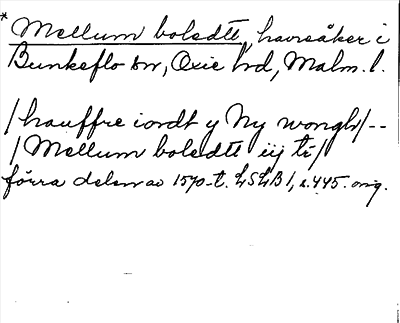 * Mellum bolsdtt, havreåker i
Bunkeflo sn, Oxie hd, Malm. l.
/hauffre iordt y Ny wongh/--
/Mellum bolsdtt iij tr/
förra delen av 1570-t. LSLB 1, s. 445. orig.